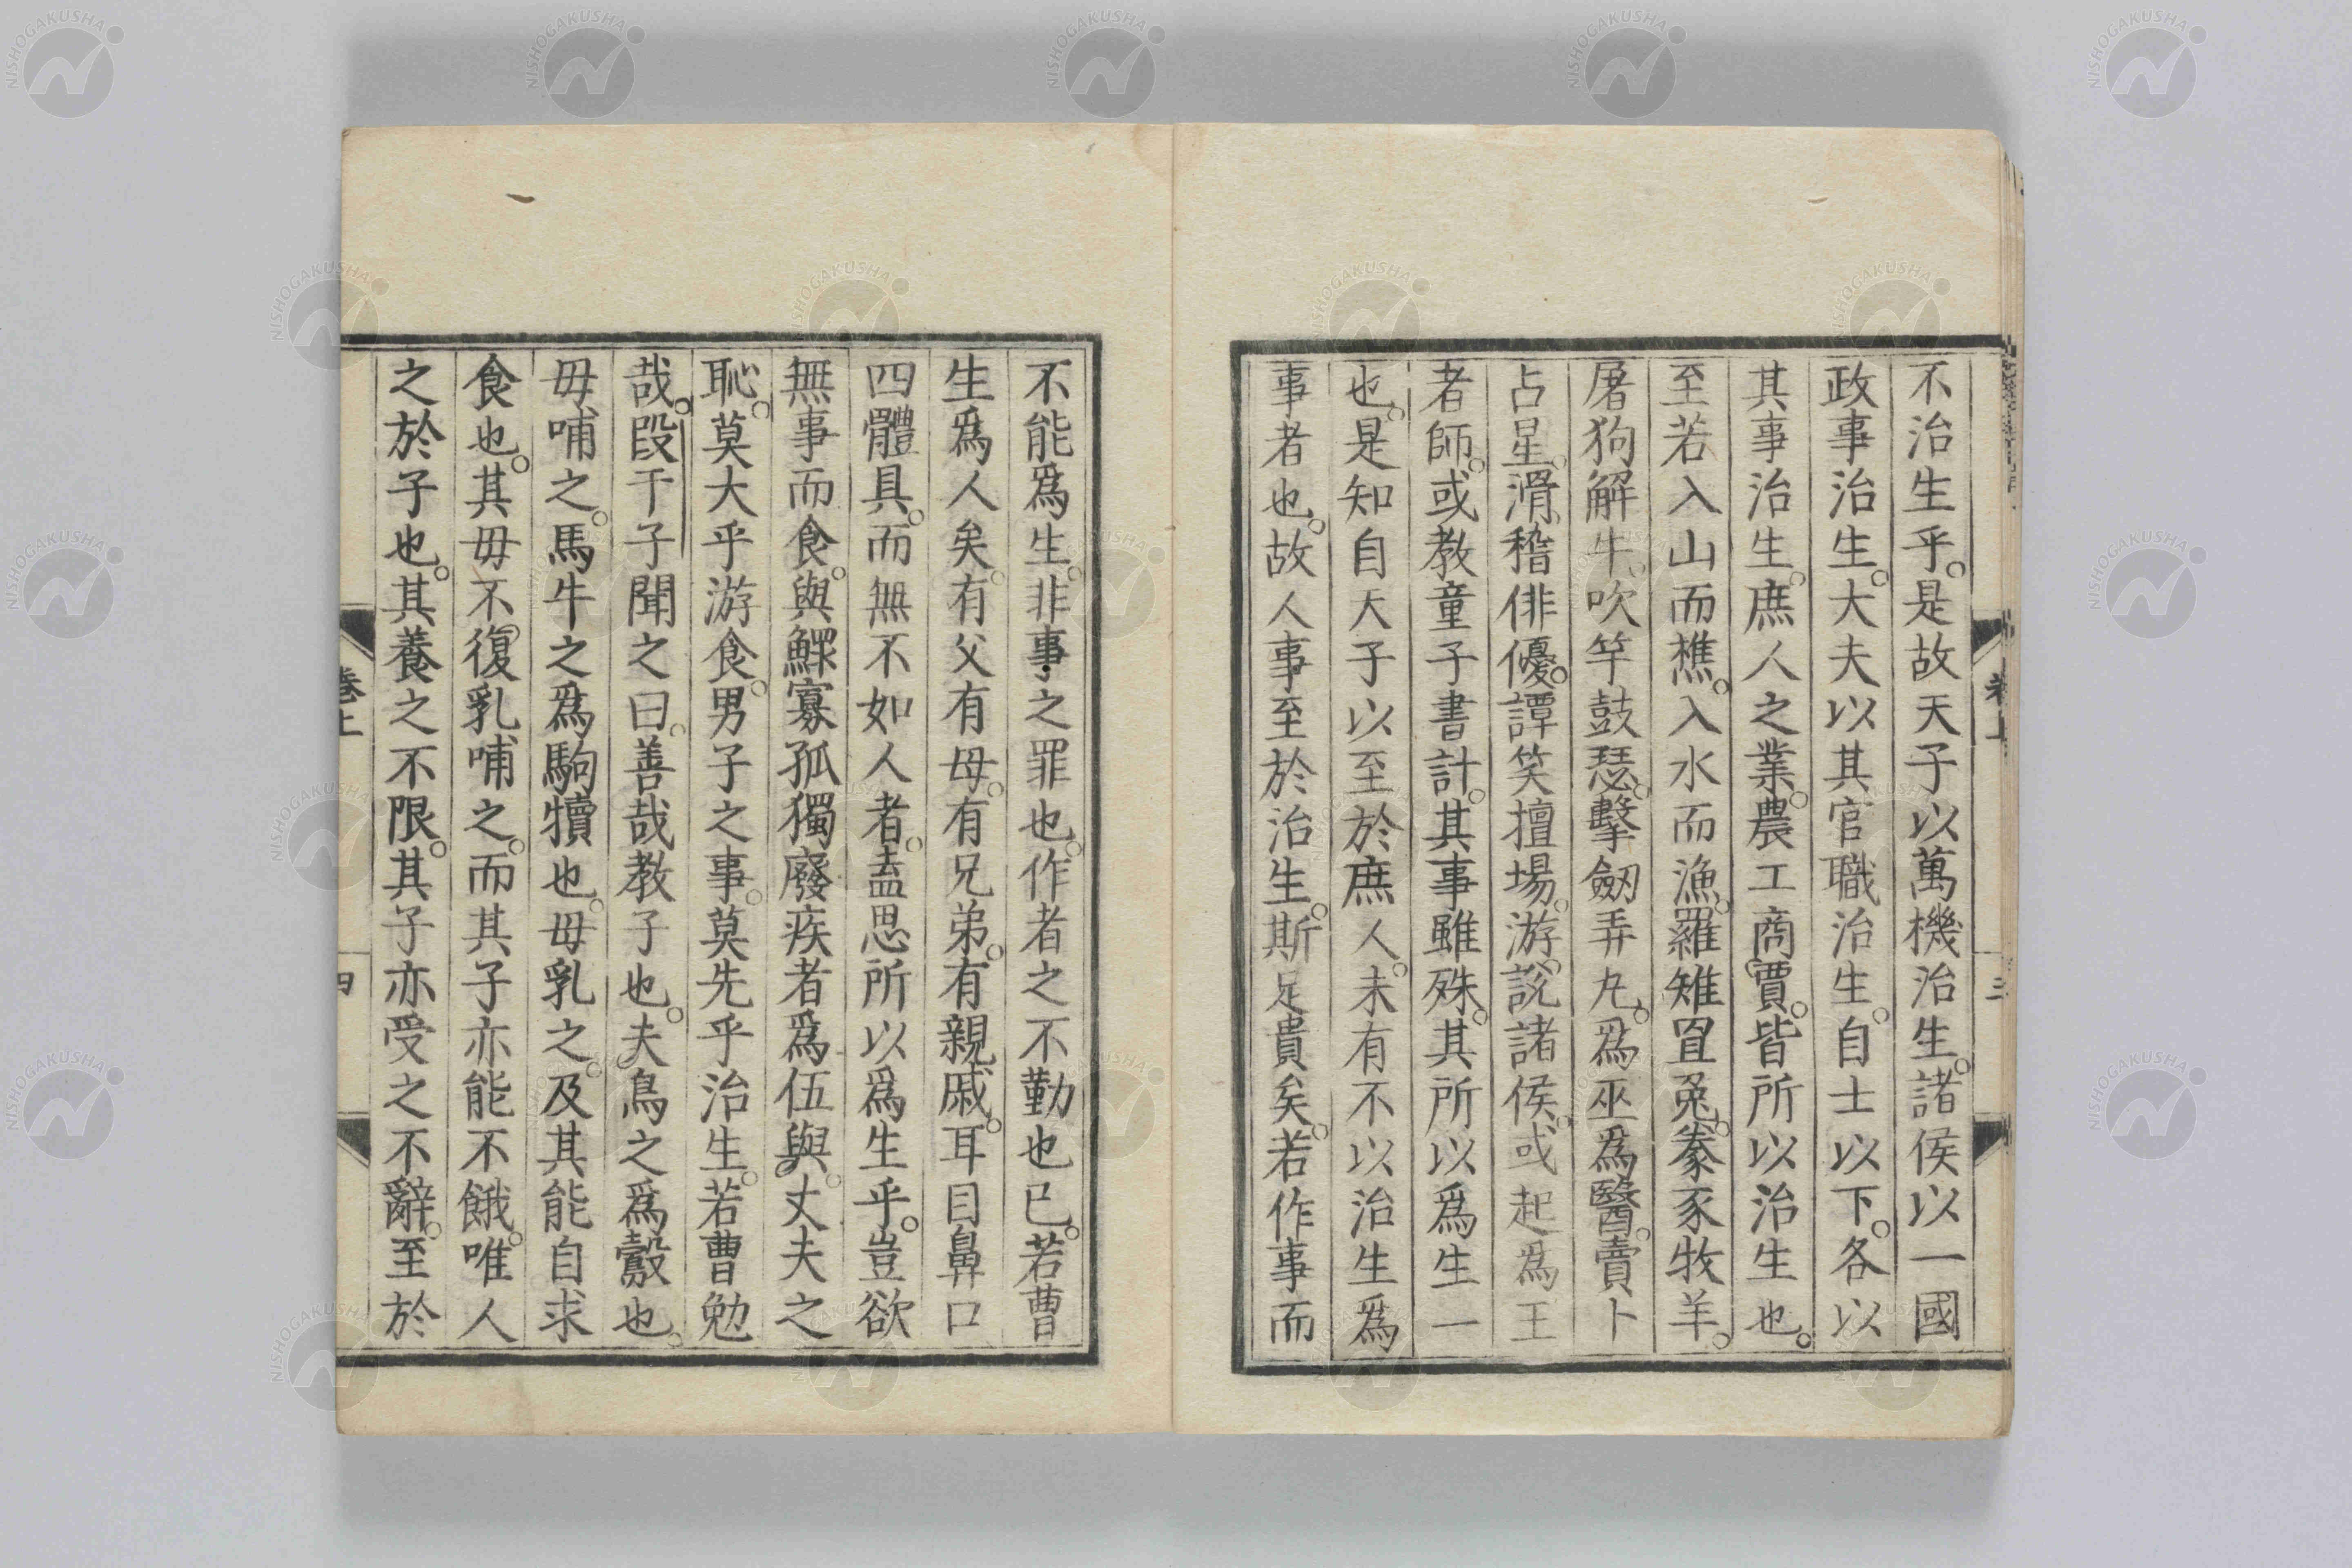 不治生乎。是故天子以萬機治生。諸侯以一國
政事治生。大夫以其官職治生。自士以下。各以
其事治生。庶人之業。農工商賈。皆所以治生也。
至若入山而樵。入水而漁。羅雉罝兎。豢豕牧羊。
屠狗解牛。吹竽鼓瑟。擊劒弄丸。爲巫爲醫。賣卜
占星。滑稽俳優。譚笑擅場。游說諸侯。或起爲王
者師。或教童子書計。其事雖殊。其所以爲生一
也。是知自天子以至於庶人。未有不以治生爲
事者也。故人事至於治生。斯足貴矣。若作事而
不能爲生。非事之罪也。作者之不勤也已。若曹
生爲人矣。有父有母。有兄弟。有親戚。耳目鼻口
四體具。而無不如人者。盍思所以爲生乎。豈欲
無事而食。與鰥寡孤獨廢疾者爲伍與。丈夫之
恥。莫大乎游食。男子之事。莫先乎治生。若曹勉
哉。段干子聞之曰。善哉教子也。夫鳥之爲鷇也。
毋哺之。馬牛之爲駒犢也。毋乳之。及其能自求
食也。其毋不復乳哺之。而其子亦能不餓。唯人
之於子也。其養之不限。其子亦受之不辭。至於
卷上
三
卷上
四
NISHOGAKUSHA